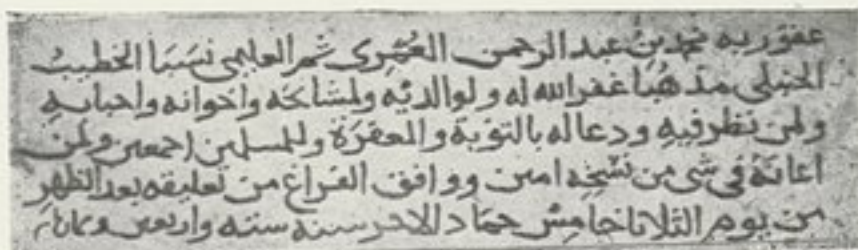 عفو ربه محمد بن عبد الرحمن العُمَرِي ثم العليمي نسَبًا الخطيبُ
الحنبلى مذهبًا غفر الله له ولوالديه ولمشائخه واخوانه واحبابهِ
ولمن نظر فيهِ ودعا له بالتوبة والمغفرة وللمسلمين اجمعين ولمن
اعانهُ فى شى من نسْخِهِ امين ووافق الفراغ من تعليقه بعد الظهرِ
من يوم الثلاثا خامِسْ جماد الاخر سنه سته واربعين وثمانمايه